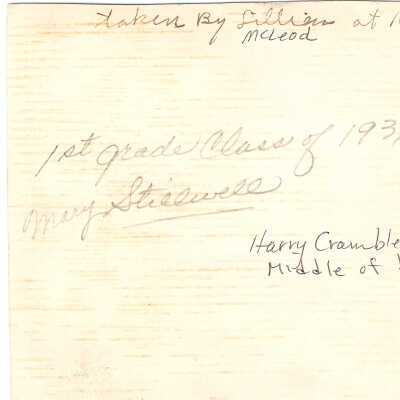 taken By Lillian at
McLeod
1st grade Class of 193
Mary Stillwell
Harry Cramble
Middle of